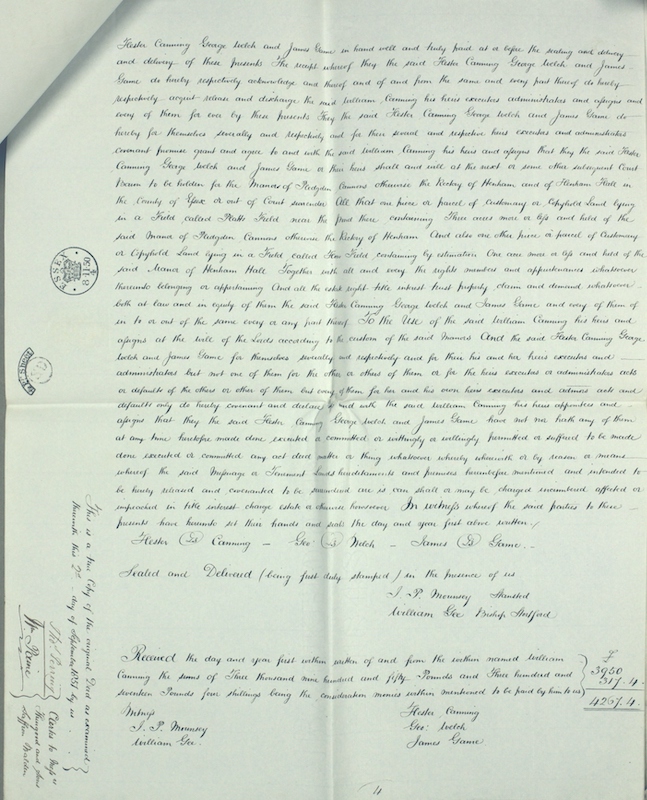 Hester Canning George Welch and James Game in hand well and truly paid at or before the sealing and delivery
and delivery of these presents The receipt whereof they the said Hester Canning George Welch and James
Game do hereby respectively acknowledge and thereof and of and from the same and every part thereof do hereby
respectively acquit release and discharge the said William Canning his heirs executors administrators and assigns and
every of them for ever by these presents They the said Hester Canning George Welch and James Game do
hereby for themselves severally and respectively and for their several and respective heirs executors and administrators
covenant promise grant and agree to and with the said William Canning his heirs and assigns that they the said Hester
Canning George Welch and James Game or their heirs shall and will at the next or some other subsequent Court
Baron to be holden for the Manors of Pledgdon Cannons otherwise the Rectory of Henham and of Henham Hall in
the County of Essex or out of Court surrender All that one piece or parcel of Customary or Copyhold Land lying
in a Field called Platts Field near the pond there containing Three acres more or less and held of the
said Manor of Pledgdon Cannons otherwise the Rectory of Henham And also one other piece or parcel of Customary
or Copyhold Land lying in a Field called Field containing by estimation One acre more or less and held of the
said Manor of Henham Hall Together with all and every the rights members and appurtenances whatsoever
thereunto belonging or appertaining And all the estate right title interest trust property claim and demand whatsoever
both at law and in equity of them the said Hester Canning George Welch and James Game and every of them of
in to or out of the same every or any part thereof To the Use of the said William Canning his heirs and
assigns at the will of the Lords according to the custom of the said Manors And the said Hester Canning George
Welch and James Game for themselves severally and respectively and for their his and her heirs executors and
administrators but not one of them for the other or others of them or for the heirs executors or administrators acts
or defaults of the others or other of them but every of them for her and his own heirs executors and admors acts and
defaults only do hereby covenant and declare to and with the said William Canning his heirs appointees and
assigns that they the said Hester Canning George Welch and James Game have not nor hath any of them
at any time heretofore made done executed or committed or wittingly or willingly permitted or suffered to be made
done executed or committed any act deed matter or thing whatsoever whereby wherewith or by reason or means
whereof the said Messuage or Tenement Lands hereditaments and premises hereinbefore mentioned and intended to
be hereby released and covenanted to be surrendered are is can shall or may be charged incumbered affected or
impeached in title interest charge estate or otherwise howsoever In witness whereof the said parties to these
presents have hereunto set their hands and seals the day and year first above written
Hester LS Canning – Geo: LS Welch – James LS Game
Sealed and Delivered (being first duly stamped) in the presence of us
J. P. Mounsey Stansted
William Gee Bishop Stortford
Received the day and year first within written of and from the within named William
Canning the sums of Three thousand nine hundred and fifty Pounds and Three hundred and
seventeen Pounds four shillings being the consideration monies within mentioned to be paid by him to us
£
3950
317.4
4267.4
Witness
J. P. Mounsey
William Gee.
Hester Canning
Geo: Welch
James Game
This is a true Copy of the original Deed as examined
therewith this 2d day of September 1851 by us
Wm Paine
Clerks to Messrs
Thurgood and Sons
Saffron Walden
ESSEX
4